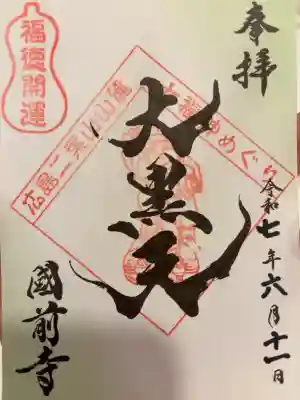 奉拝
福徳開運
広島二葉の里山麓
七福神めぐり
大黒天
令和七年六月十一日
國前寺